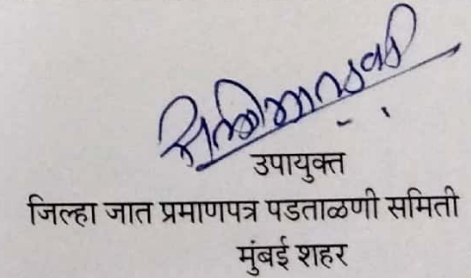 उपायुक्त
जिल्हा जात प्रमाणपत्र पडताळणी समिती
मुंबई शहर